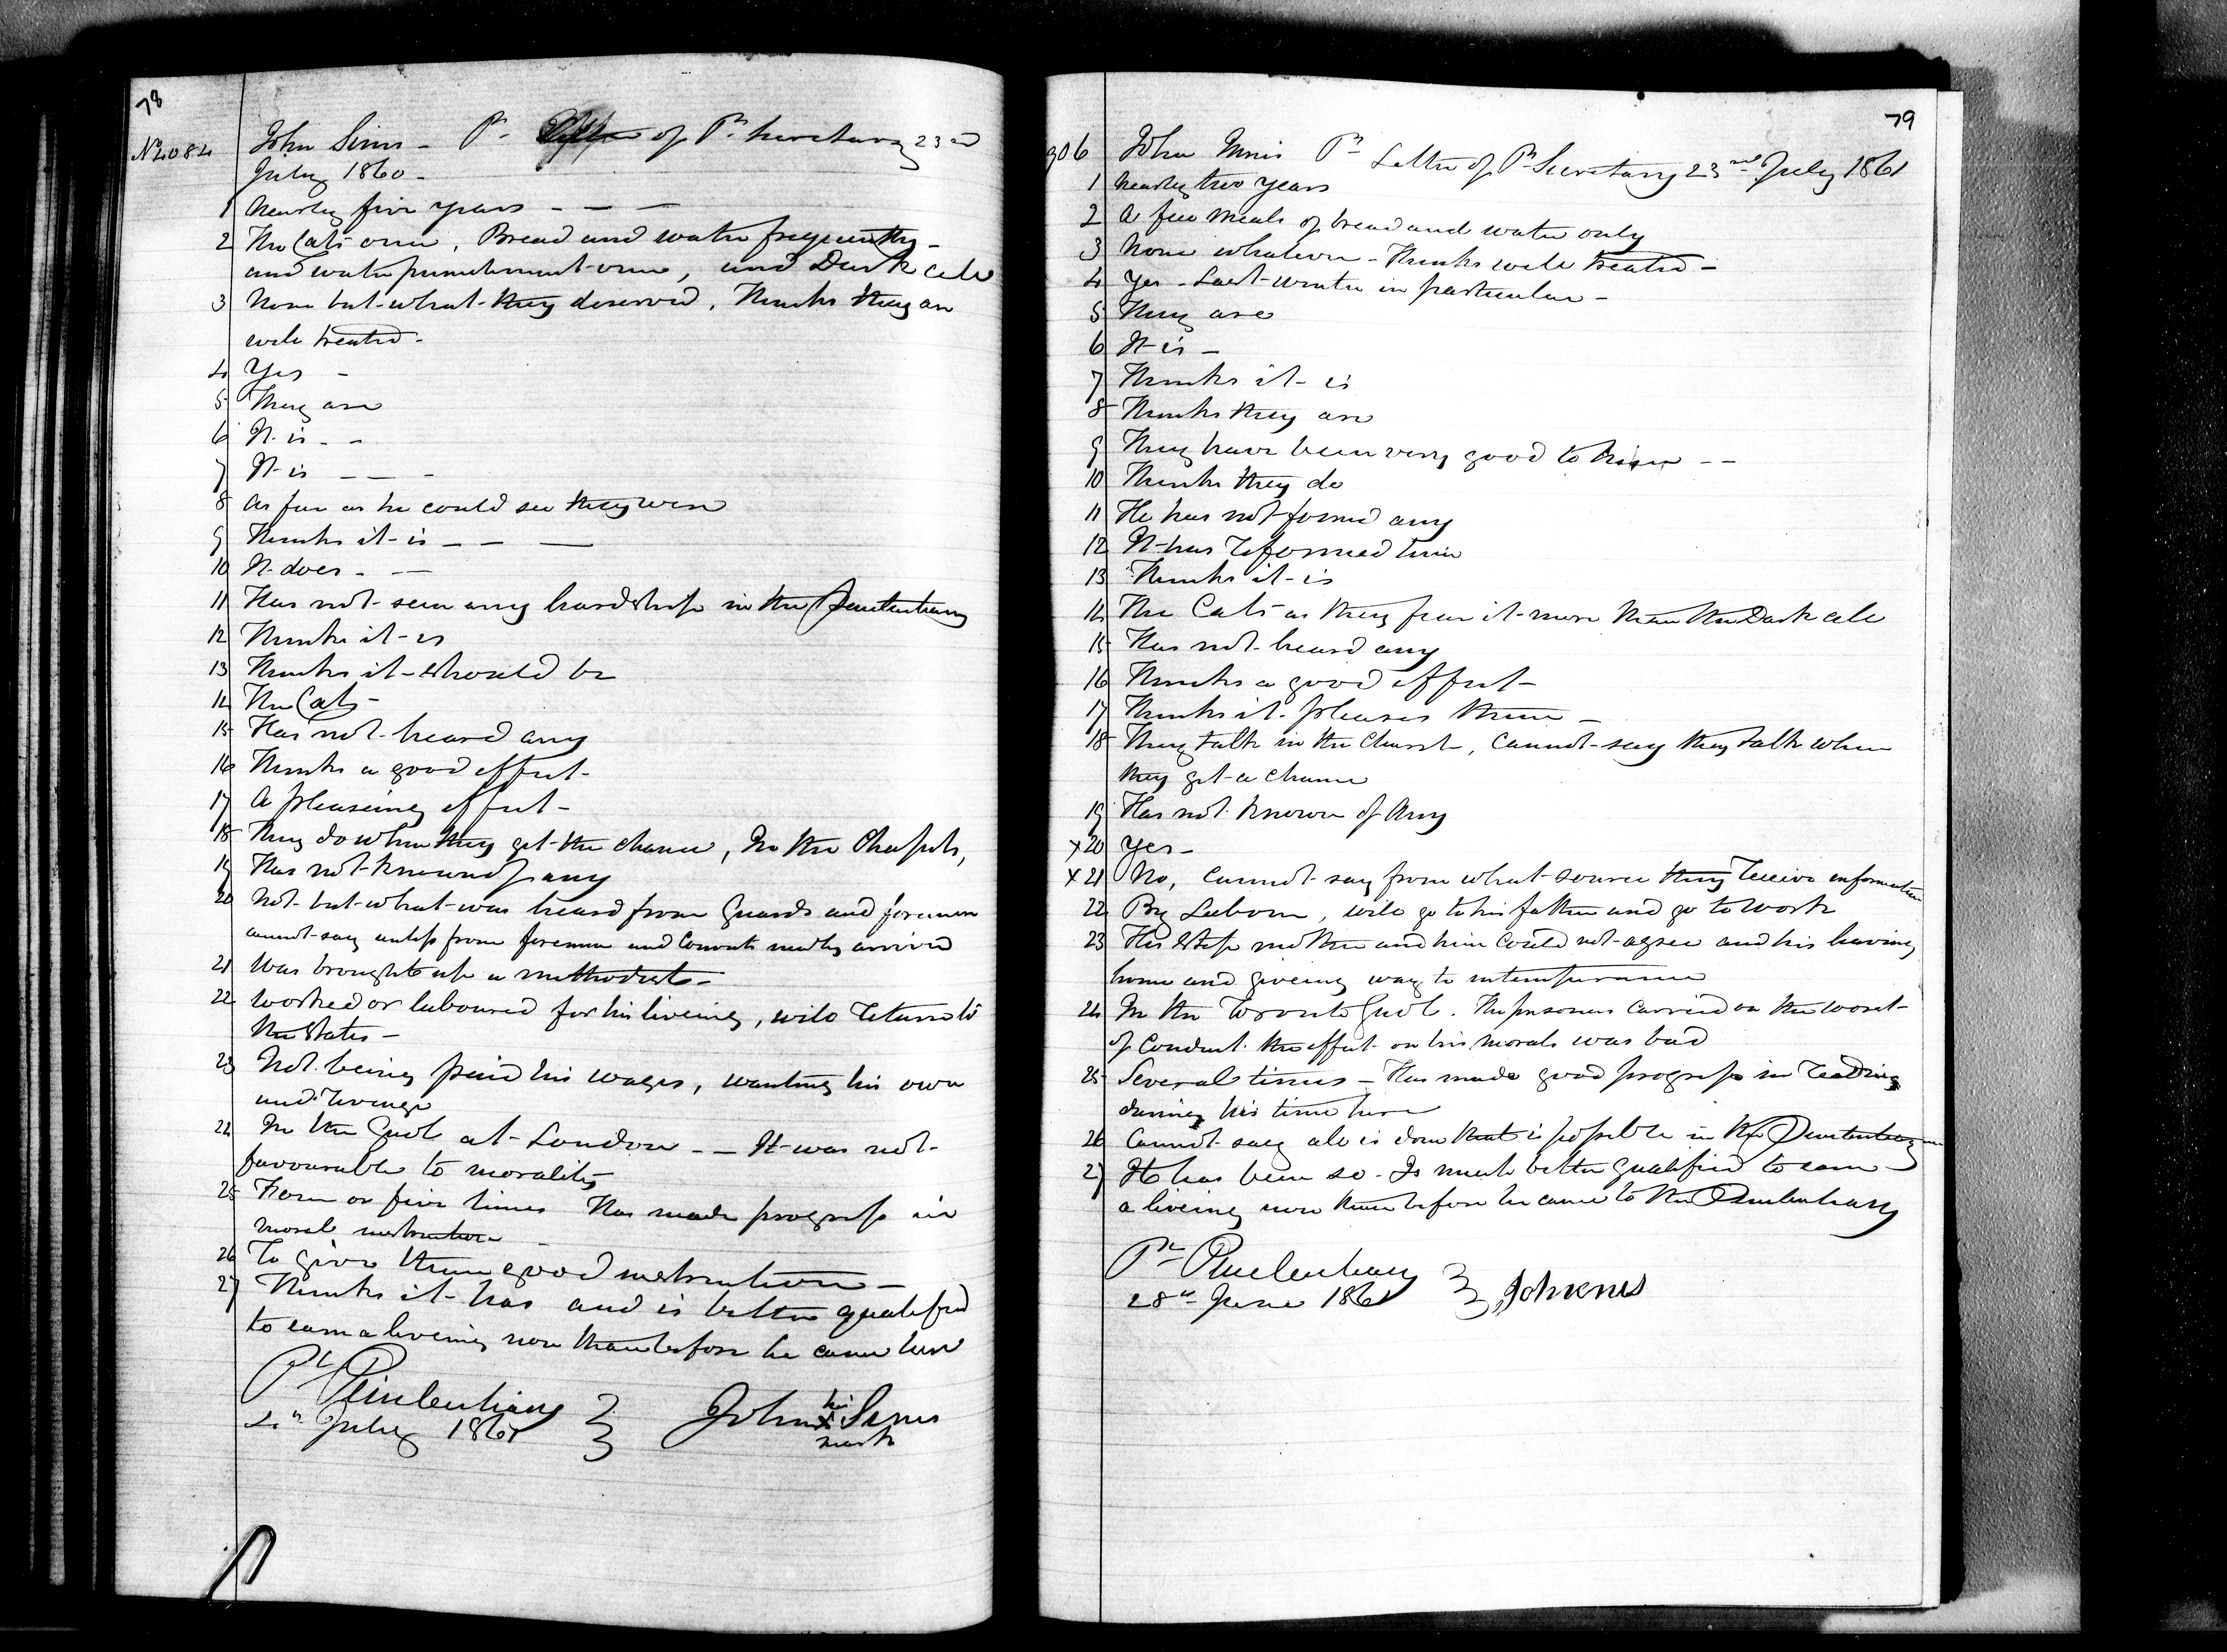 78
No 4084 John Sims - Pr of Pl Secretary 23rd
July 1860 -
1 Nearly five years - - -
2 The Cats once, Bread and water frequently -
and water punishment once, and Dark cell
3 None but what they deserved, Thinks they are
well treated -
4 Yes -
5 They are
6 It is - -
7 It is - - -
8 As far as he could see they were
9 Thinks it is - - -
10 It does - -
11 Has not seen any hardship in the Penitentiary
12 Thinks it is
13 Thinks it should be
14 The Cats -
15 Has not heard any
16 Thinks a good effect -
17 A pleaseing effect -
18 They do when they get the chance, In the Chapels,
19 Has not known of any
20 Not but what was heard from Guards and foremen
cannot say unless from foremen and Convicts newly arrived
21 Was brought up a methodist -
22 Worked or laboured for his liveing, will Return to
the States -
23 Not being paid his wages, wanting his own
and Revenge
24 In the Gaol at London - - It was not
favourable to morality
25 Four or five times Has made progress in
moral instruction -
26 To give them good instruction -
27 Thinks it has and is better qualified
to earn a liveing now than before he came here
Pl Penitentiary
4th July 1861
John his X Sims
mark
79
906 John Innis Pr Letter of Pl Secretary 23rd July 1861
1 Nearly two years
2 A few meals of bread and water only
3 None whatever - Thinks well treated -
4 Yes - Last winter in particular -
5 They are
6 It is -
7 Thinks it is
8 Thinks they are
9 They have been very good to him - -
10 Thinks they do
11 He has not formed any
12 It has Reformed him
13 Thinks it is
14 The Cats as they fear it more than the Dark cell
15 Has not heard any
16 Thinks a good effect -
17 Thinks it pleases them -
18 They talk in the Church, Cannot say they talk when
they get a chance
19 Has not known of Any
x 20 Yes -
x 21 No, Cannot say from what source they Receive information
22 By Labour, will go to his father and go to work
23 His Step mother and him Could not agree and his leaving
home and giveing way to intemperance
24 In the Toronto Gaol. The prisoners Carried on the worst
of Conduct. the effect on his morals was bad
25 Several times - Has made good progress in Reading
during his time here
26 Cannot say all is done that is possible in the Penitentiary
27 It has been so - Is much better qualified to earn
a liveing now than before he came to the Penitentiary
Pl Penitentiary
28th June 1861